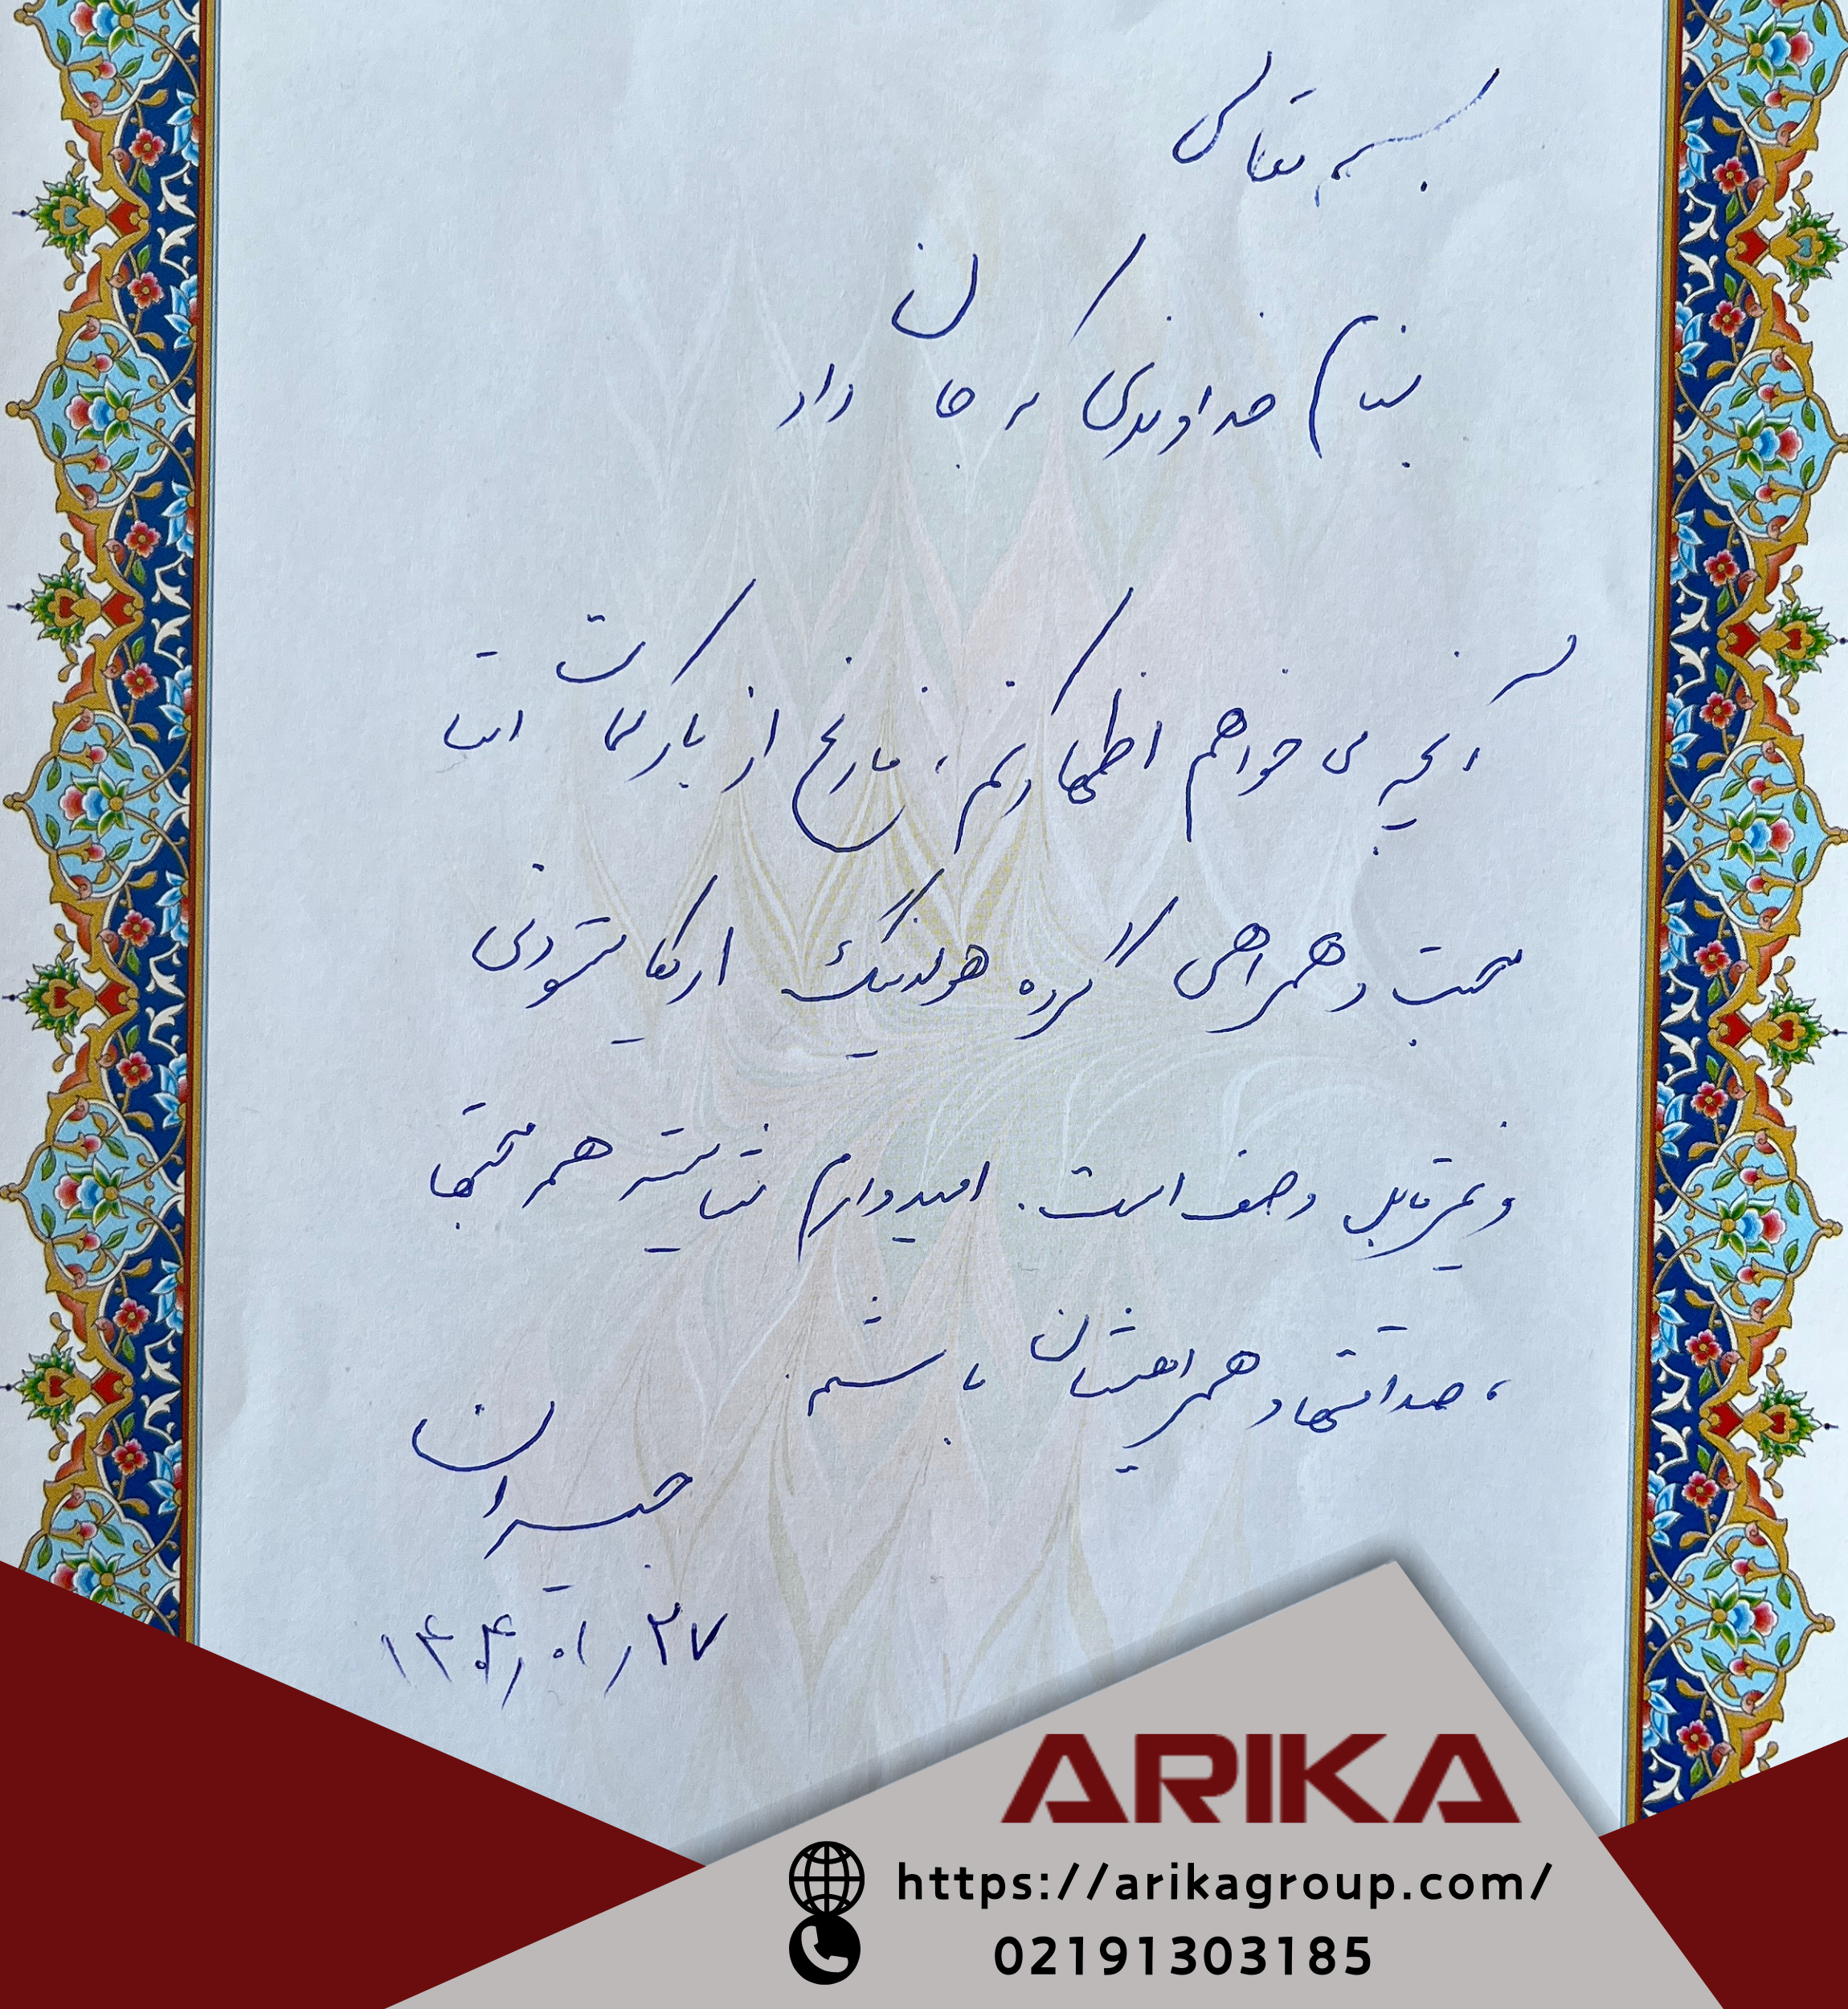 بسم تعالی
بنام خداوندی که جان داد
آنچه می خواهم اظهار کنم، فارغ از بار کلمات است
محبت و همراهی گروه هولدینگ اریکا ستودنی
و غیر قابل وصف است. امیدوارم شایسته همه محبتها
، صداقتها و همراهیشان باشم.
جبیران
۱۴۰۴/۰۱/۲۷
ARIKA
https://arikagroup.com/
02191303185